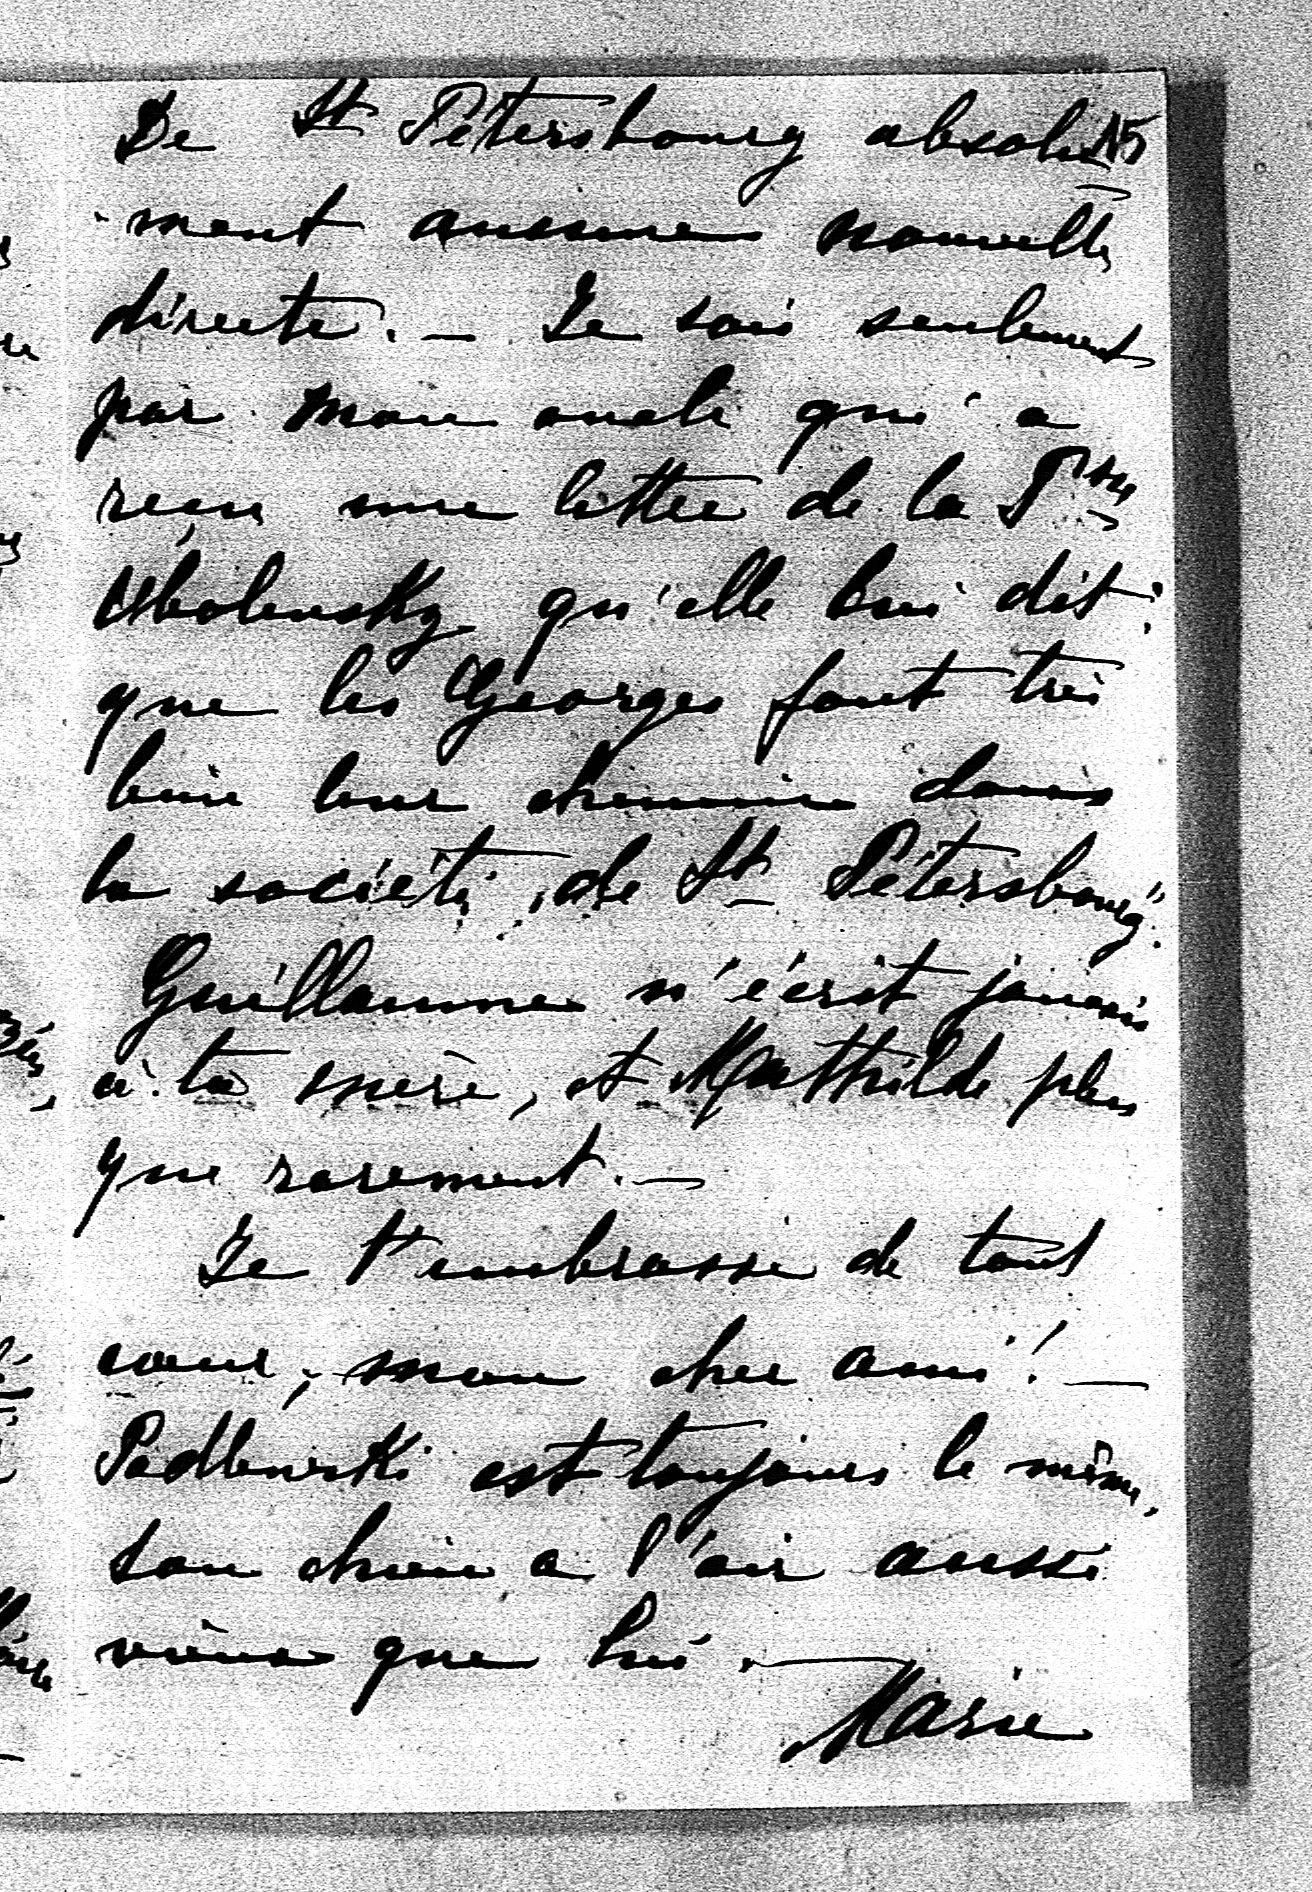 De St Pétersbourg absolu 15
ment aucune nouvelle
directe. — Je sais seulement
par mon oncle qui a
reçu une lettre de la Psse
Obolensky qu'elle lui dit
que les Georges font très
bien leur chemin dans
la société de St Pétersbourg.
Guillaume n'écrit jamais
à ta mère, et Mathilde plus
que rarement. —
Je t'embrasse de tout
cœur, mon cher ami! —
Podlewski est toujours le même,
son chien a l'air aussi
vieux que lui. —
Marie